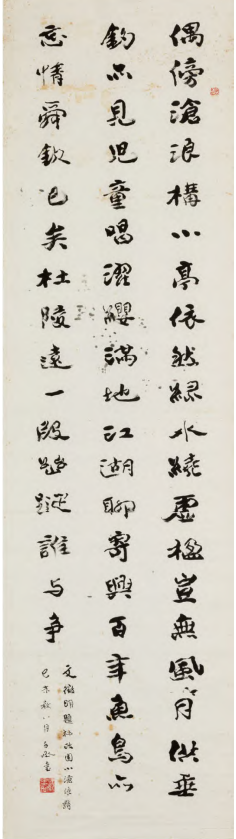 偶傍滄浪構小亭依然綠水繞虛楹豈無風月供垂
釣亦見兒童唱濯纓滿地江湖聊寄興百年魚鳥亦
忘情舜欽已矣杜陵遠一段幽蹤誰与爭
文徵明題拙政園小滄浪詩